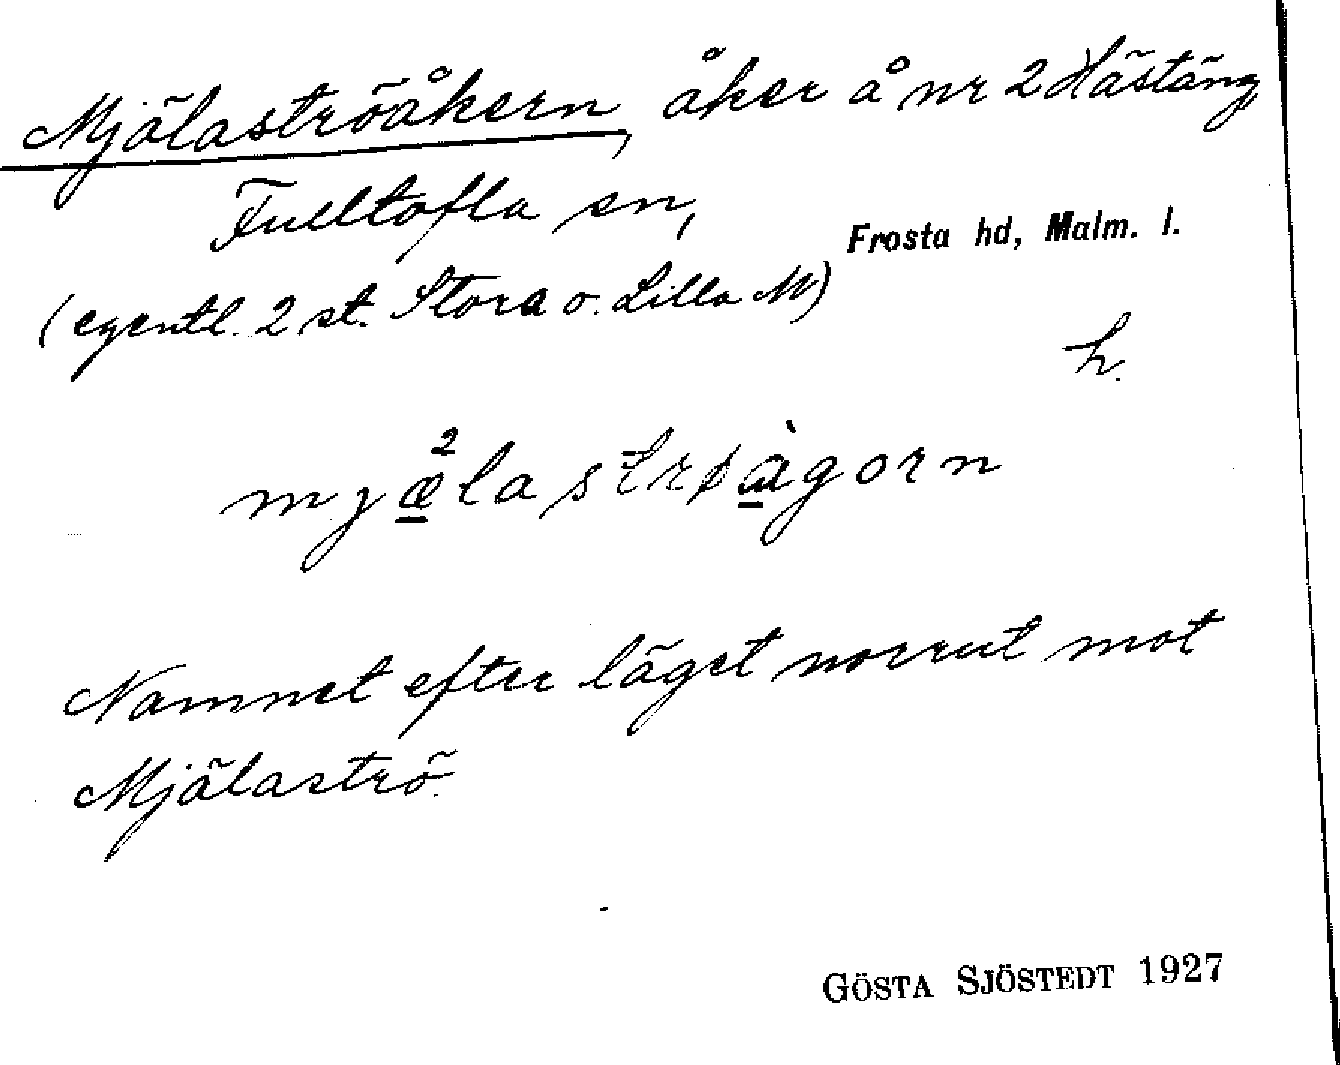 Mjälaströåkern, åker å nr 2 Hästäng
Fulltofla sn,
Frosta hd, Malm. l.
(egentl. 2 st. Stora o. Lilla M)
h.
mjæ̲²lastrøà̲gorn
Namnet efter läget norrut mot
Mjälaströ.
GÖSTA SJÖSTEDT 1927